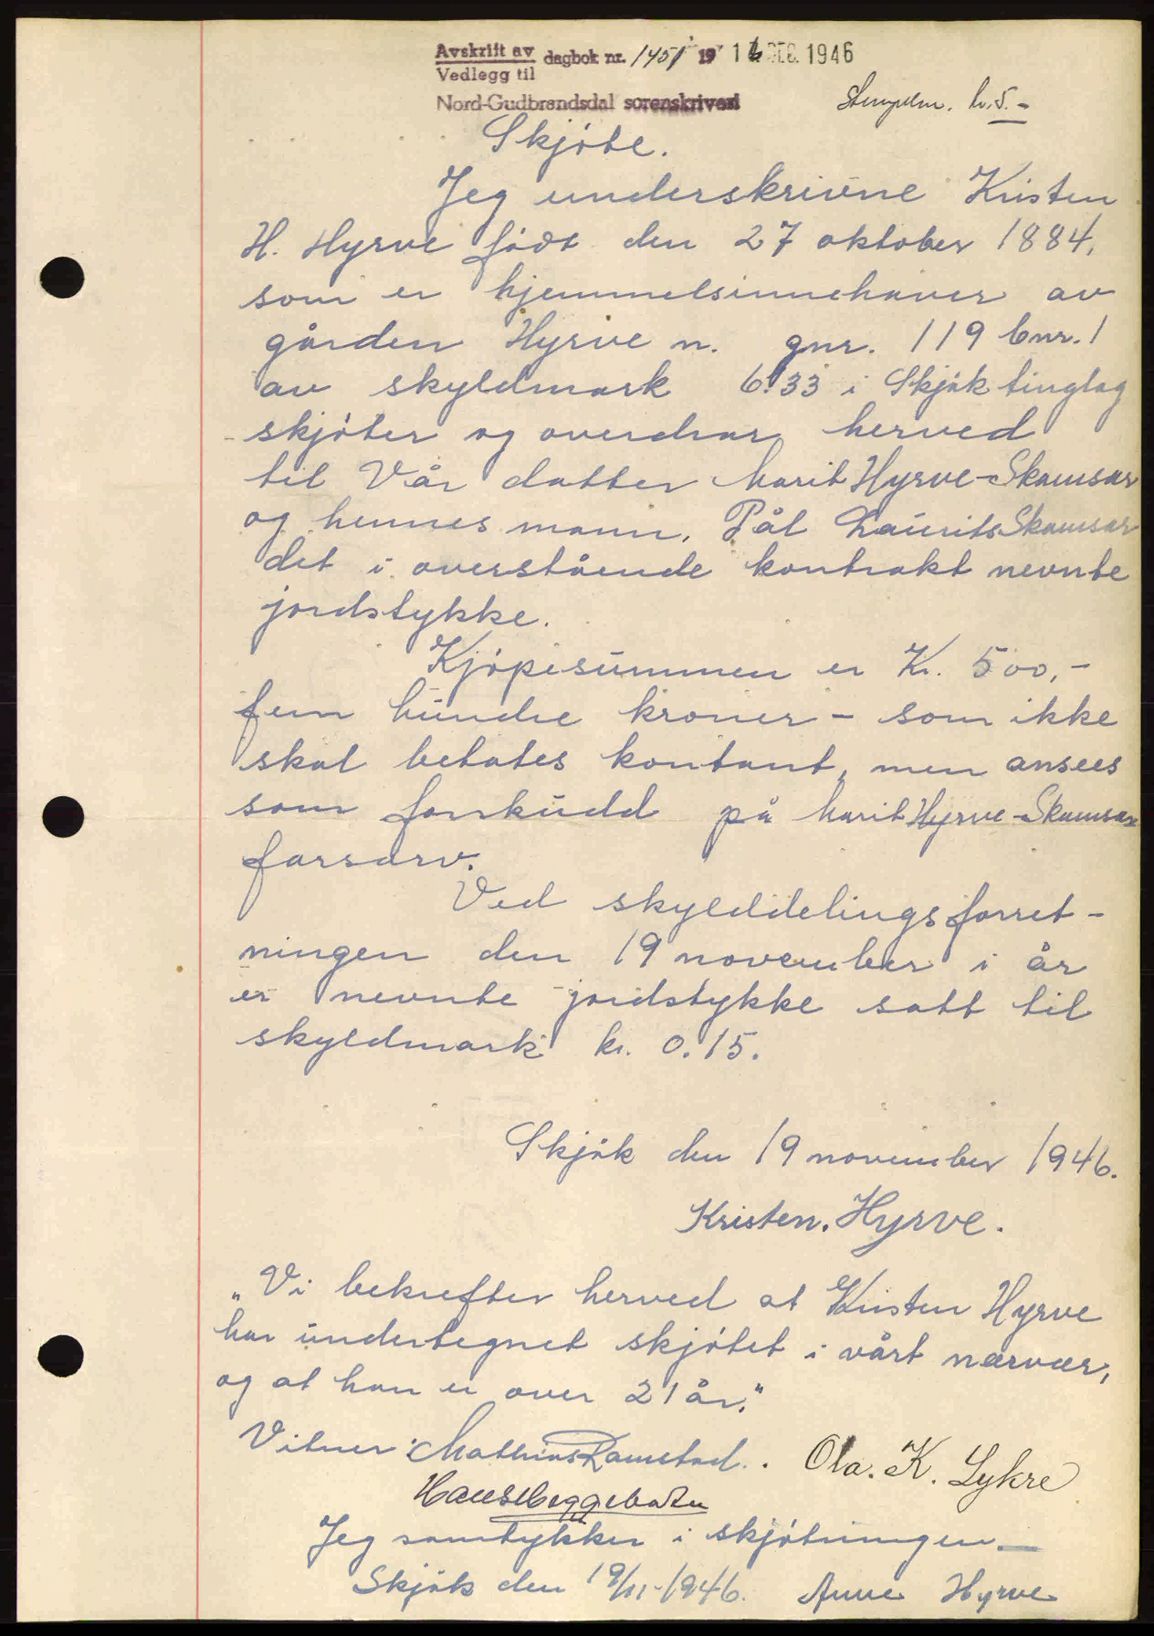 Avskrift av dagbok nr. 1451 19 16 DES. 1946
Vedlegg til
Nord-Gudbrandsdal sorenskriveri
Stempelm. kr. 5.-
Skjöte.
Jeg underskrivne Kristen
H. Hyrve födt den 27 oktober 1884,
som er hjemmelsinnehaver av
gården Hyrve n. gnr. 119 bnr. 1
av skyldmark 6.33 i Skjåk tinglag
skjöter og overdrar herved
til Vår datter Marit Hyrve-Skamsar
og hennes mann, Pål Laurits Skamsar
det i overstående kontrakt nevnte
jordstykke.
Kjöpesummen er Kr. 500,-
fem hundre kroner - som ikke
skal betales kontant, men ansees
som forskudd på Marit Hyrve-Skamsar
farsarv.
Ved skylddelingsforret-
ningen den 19 november i år
er nevnte jordstykke satt til
skyldmark kr. 0.15.
Skjåk den 19 november 1946.
Kristen. Hyrve.
"Vi bekrefter herved at Kristen Hyrve
har undertegnet skjötet i vårt nærvær,
og at han er over 21 år."
Vitner: Mathias Ramstad. Ola. K. Lykre
Jeg samtykker i skjötningen.
Skjåk den 19/11-1946. Anne Hyrve